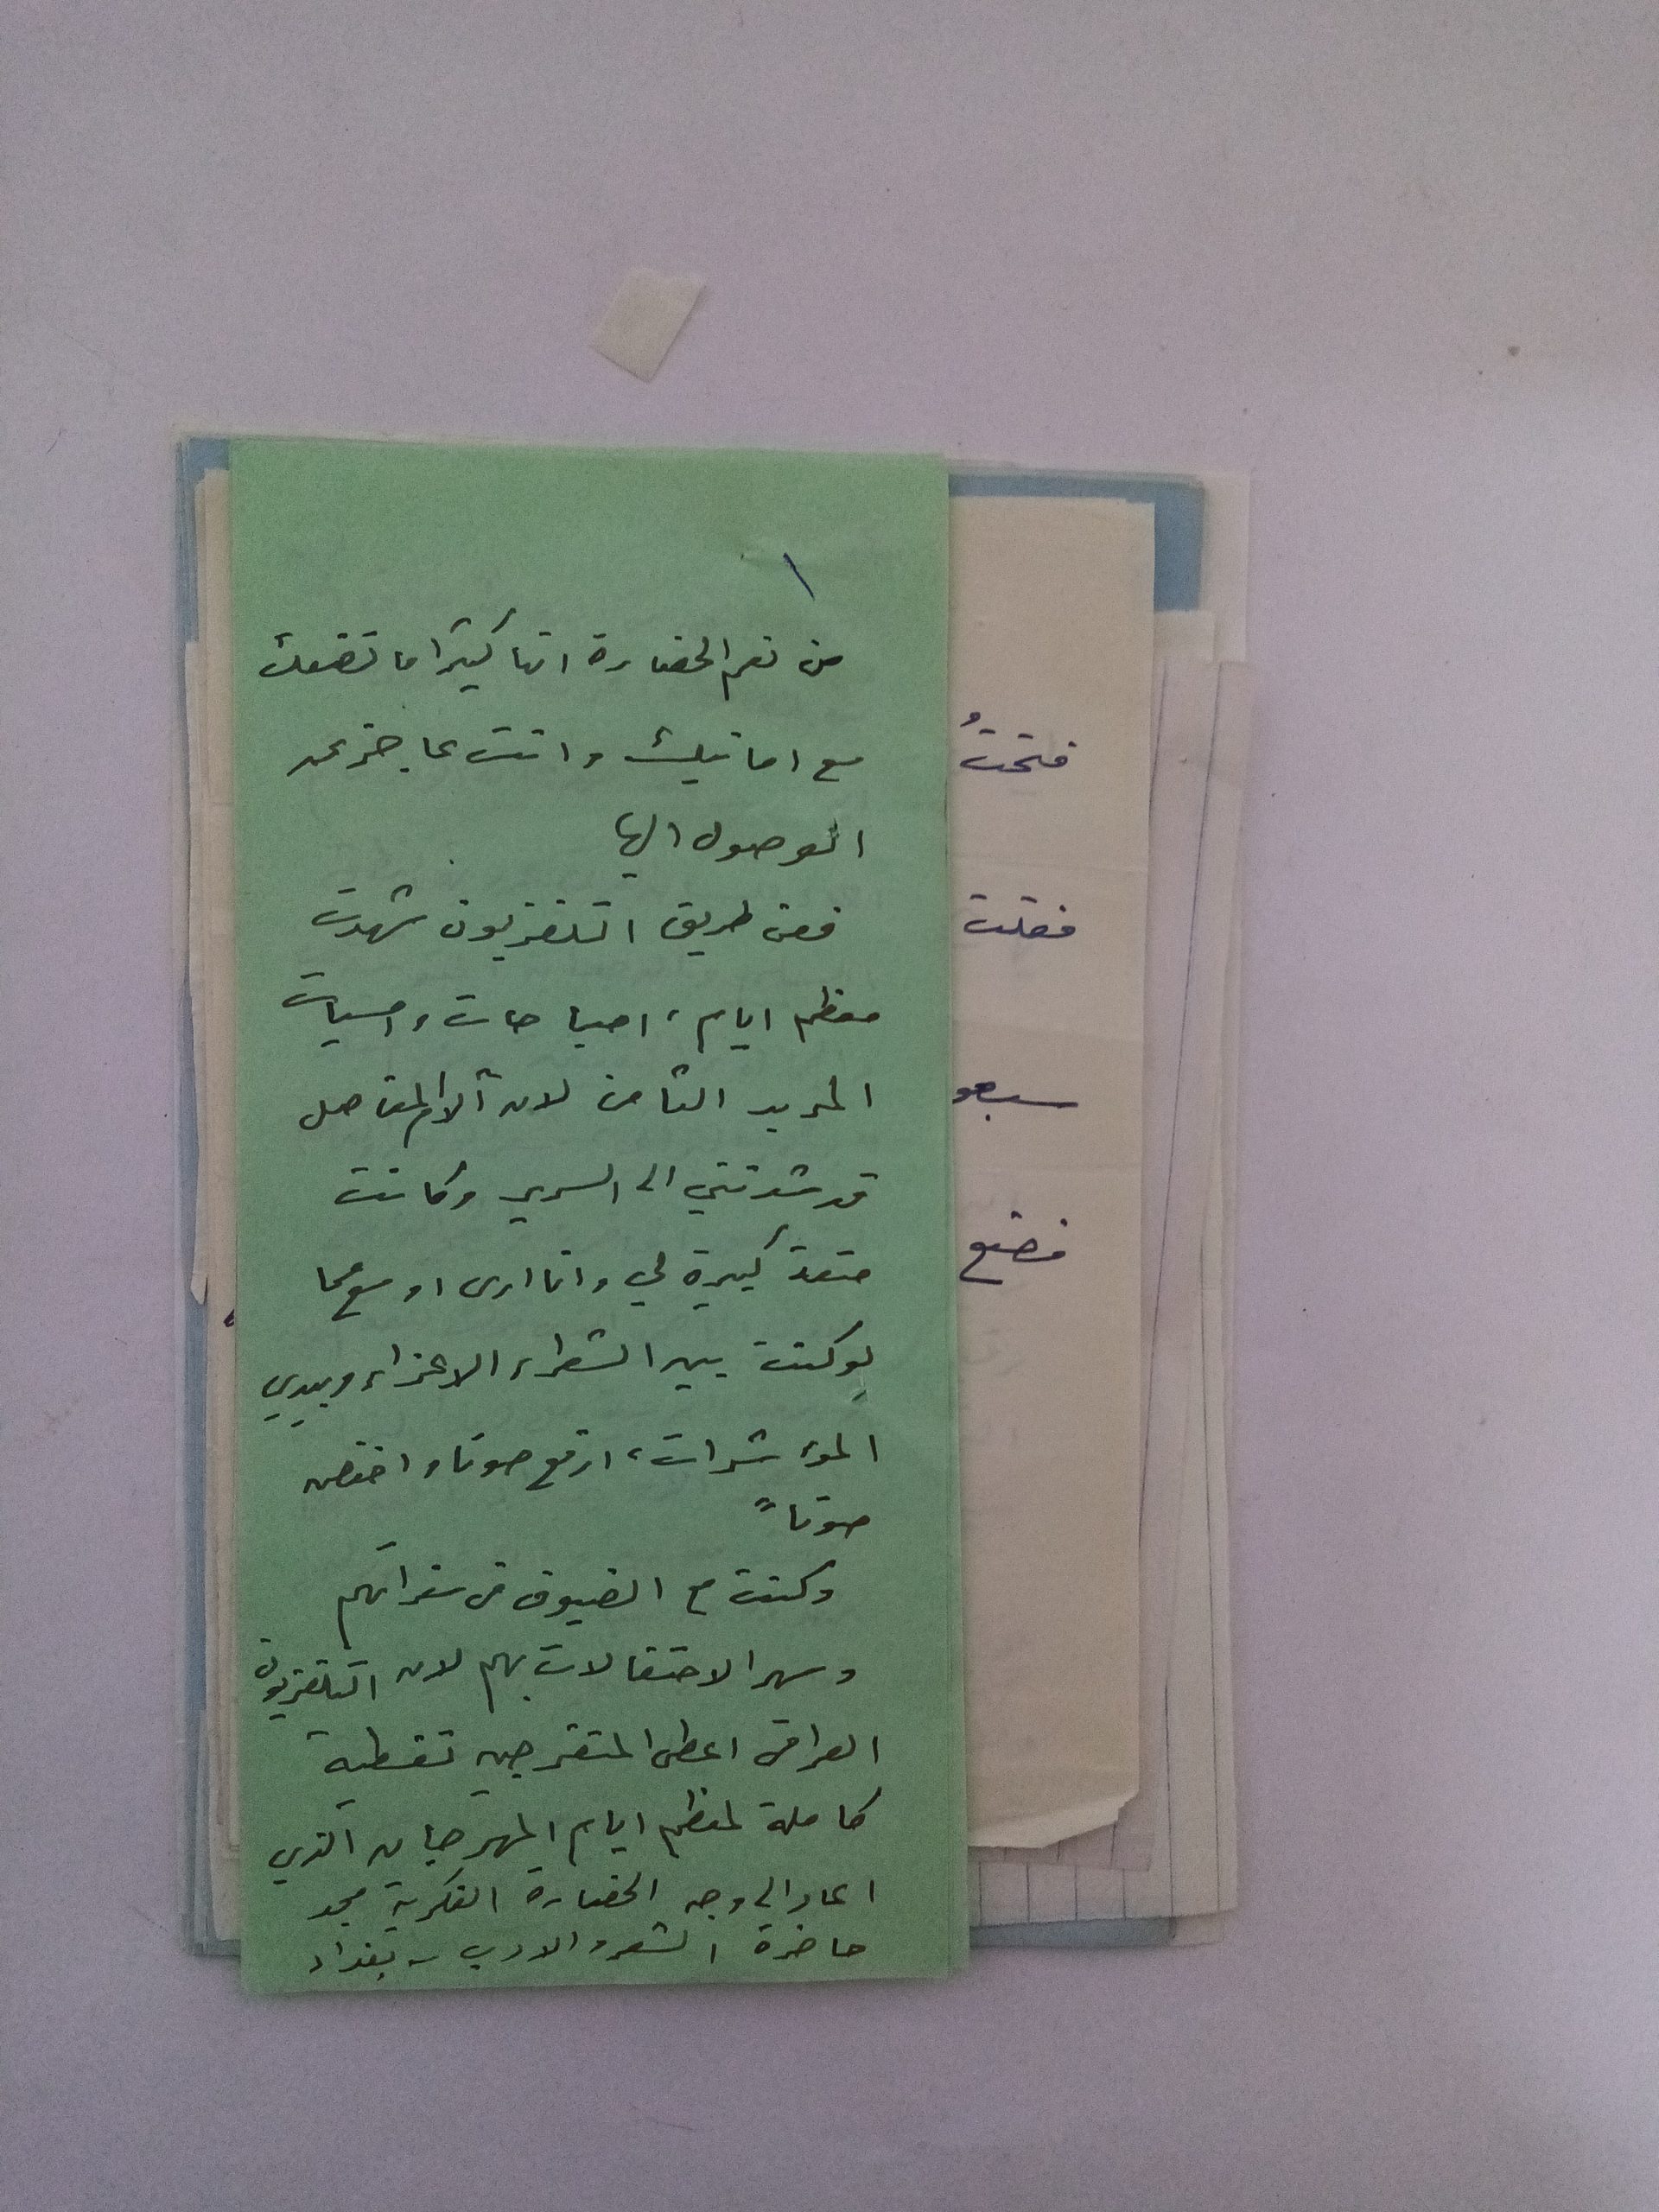 ١
من نعم الحضارة انها كثيرا ما تضعك
مع امانيك وانت عاجز عن
الوصول اليها
فعن طريق التلفزيون شهدت
معظم ايام، اصباحات وامسيات
المربد الثامن لان آلام المفاصل
قد شدتني الى السرير وكانت
متعة كبيرة لي وانا ارى اوسع مما
لو كنت بين الشعراء الاعزاء وبيدي
المؤشرات، ارفع صوتا واخفض
صوتاً
وكنت مع الضيوف في سفراتهم
وسهر الاحتفالات بهم لان التلفزيون
العراقي اعطى المتفرجين تغطية
كاملة لمعظم ايام المهرجان الذي
اعاد الى وجه الحضارة الفكرية مجد
حاضرة الشعر والادب - بغداد
فتحتُ
فقلت
سبعو
فضع